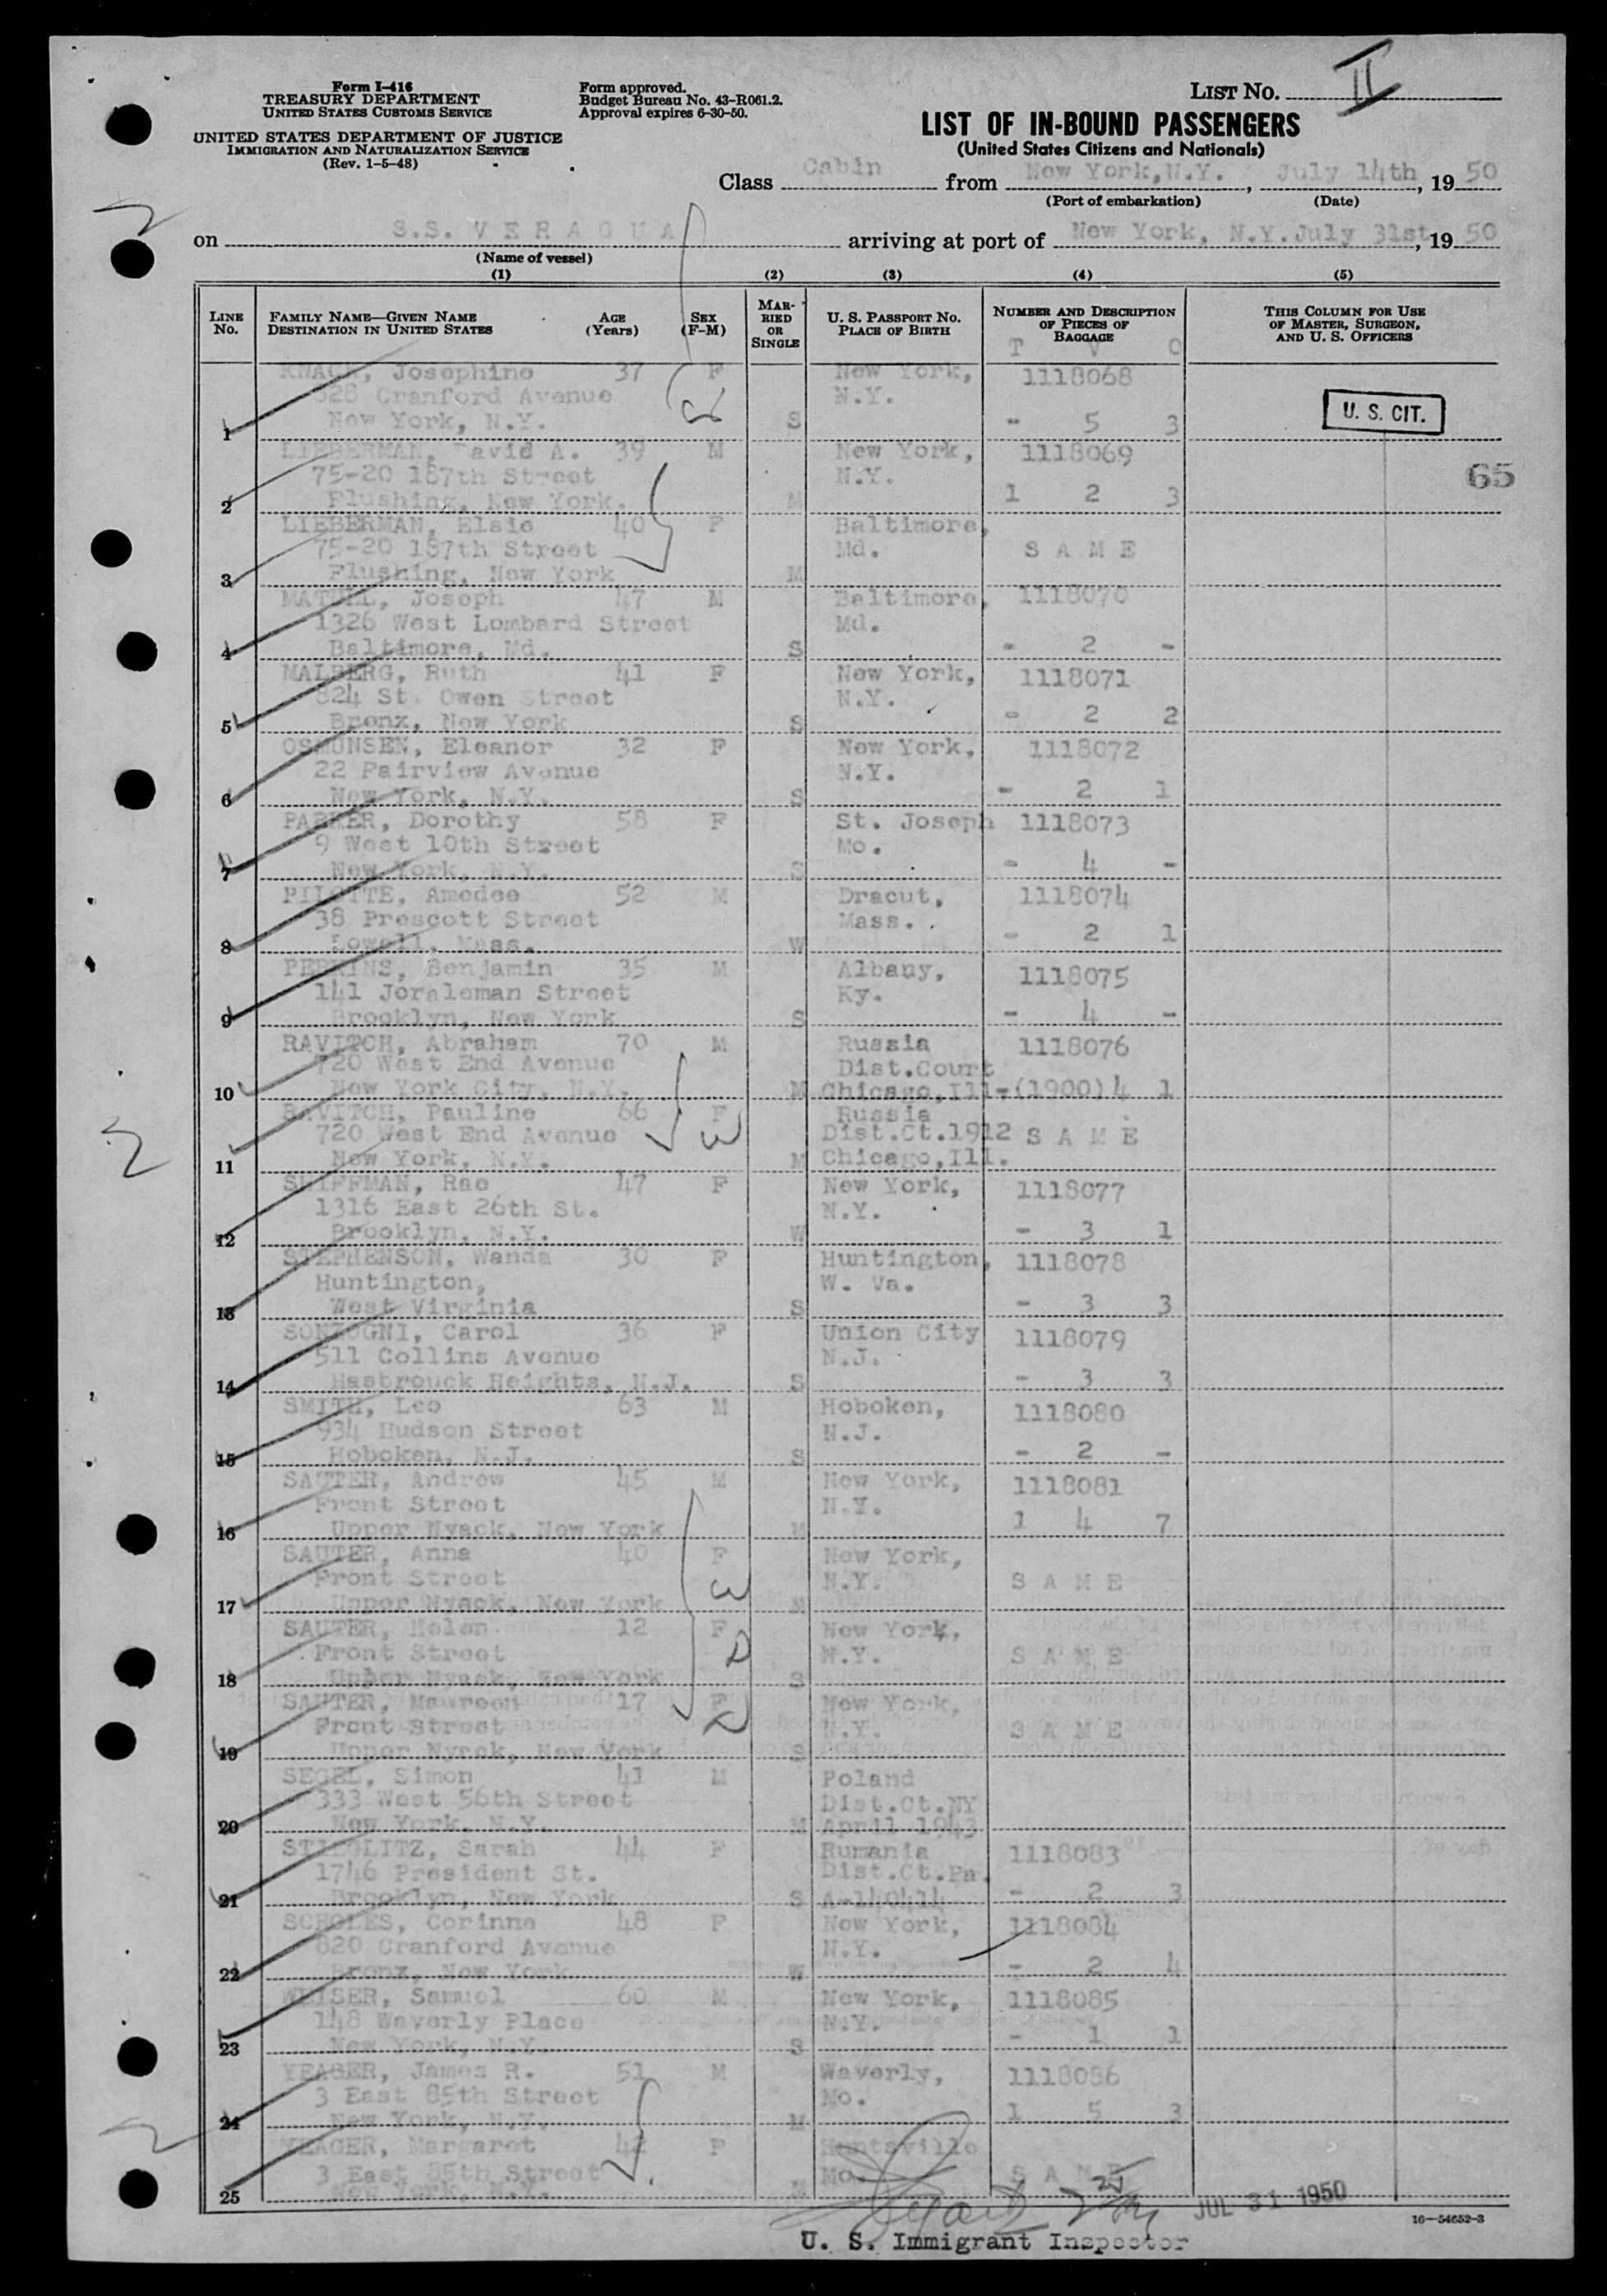 Form I-416
TREASURY DEPARTMENT
UNITED STATES CUSTOMS SERVICE
UNITED STATES DEPARTMENT OF JUSTICE
IMMIGRATION AND NATURALIZATION SERVICE
(Rev. 1-5-48)
Form approved.
Budget Bureau No. 43-R061.2.
Approval expires 6-30-50.
LIST No. II
LIST OF IN-BOUND PASSENGERS
(United States Citizens and Nationals)
Class Cabin from New York, N.Y., July 14th, 1950
(Port of embarkation) (Date)
on S.S. VERAGUA arriving at port of New York, N.Y. July 31st, 1950
(Name of vessel)
(1) (2) (3) (4) (5)
LINE No. FAMILY NAME—GIVEN NAME DESTINATION IN UNITED STATES AGE (Years) SEX (F-M) MARRIED OR SINGLE U. S. PASSPORT NO. PLACE OF BIRTH NUMBER AND DESCRIPTION OF PIECES OF BAGGAGE THIS COLUMN FOR USE OF MASTER, SURGEON, AND U. S. OFFICERS
T V O
KNACK, Josephine 37 F New York, 1118068
Cranford Avenue N.Y. U. S. CIT.
1 New York, N.Y. S - 5 3
LIEBERMAN, David A. 39 M New York, 1118069
75-20 187th Street N.Y. 65
2 Flushing, New York. M 1 2 3
LIEBERMAN, Elsie 40 F Baltimore,
75-20 187th Street Md. S A M E
3 Flushing, New York M
Joseph 47 M Baltimore, 1118070
1326 West Lombard Street Md.
4 Baltimore, Md. S - 2 -
MALBERG, Ruth 41 F New York, 1118071
824 St. Owen Street N.Y.
5 Bronx, New York S - 2 2
OSMUNSEN, Eleanor 32 F New York, 1118072
22 Fairview Avenue N.Y.
6 New York, N.Y. S - 2 1
PARKER, Dorothy 58 F St. Joseph 1118073
9 West 10th Street Mo.
7 New York, N.Y. S - 4 -
PILOTTE, Amedee 52 M Dracut, 1118074
38 Prescott Street Mass.
8 Lowell, Mass. W - 2 1
PERKINS, Benjamin 35 M Albany, 1118075
141 Joraleman Street Ky.
9 Brooklyn, New York S - 4 -
RAVITCH, Abraham 70 M Russia 1118076
720 West End Avenue Dist.Court
10 New York City, N.Y. M Chicago,Ill-(1900) 4 1
RAVITCH, Pauline 66 F Russia
720 West End Avenue Dist.Ct.1912 S A M E
11 New York, N.Y. M Chicago,Ill.
SHIFFMAN, Rae 47 F New York, 1118077
1316 East 26th St. N.Y.
12 Brooklyn, N.Y. W - 3 1
STEPHENSON, Wanda 30 F Huntington, 1118078
Huntington, W. Va.
13 West Virginia S - 3 3
SONZOGNI, Carol 36 F Union City 1118079
511 Collins Avenue N.J.
14 Hasbrouck Heights, N.J. S - 3 3
SMITH, Leo 63 M Hoboken, 1118080
934 Hudson Street N.J.
15 Hoboken, N.J. S - 2 -
SAUTER, Andrew 45 M New York, 1118081
Front Street N.Y.
16 Upper Nyack, New York M 1 4 7
SAUTER, Anna 40 F New York,
Front Street N.Y. S A M E
17 Upper Nyack, New York M
SAUTER, Helen 12 F New York,
Front Street N.Y. S A M E
18 Upper Nyack, New York S
SAUTER, Maureen 17 F New York,
Front Street N.Y. S A M E
19 Upper Nyack, New York S
SEGEL, Simon 41 M Poland
333 West 56th Street Dist.Ct.NY
20 New York, N.Y. M April 1943
STIEGLITZ, Sarah 44 F Rumania 1118083
1746 President St. Dist.Ct.Pa.
21 Brooklyn, New York S A-140414 - 2 3
SCHOLES, Corinne 48 F New York, 1118084
820 Cranford Avenue N.Y.
22 Bronx, New York W - 2 4
WEISER, Samuel 60 M New York, 1118085
148 Waverly Place N.Y.
23 New York, N.Y. S - 1 1
YEAGER, James R. 51 M Waverly, 1118086
3 East 85th Street Mo.
24 New York, N.Y. M 1 5 3
YEAGER, Margaret 42 F Huntsville
3 East 85th Street Mo. S A M E
25 New York, N.Y. M
JUL 31 1950
16—54652-3
U. S. Immigrant Inspector